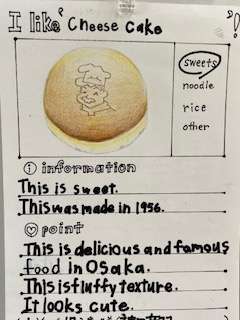 I like Cheese Cake
sweets
noodle
rice
other
① information
This is sweet.
This was made in 1956.
♡ point
This is delicious and famous
food in Osaka.
This is fluffy texture.
It looks cute.